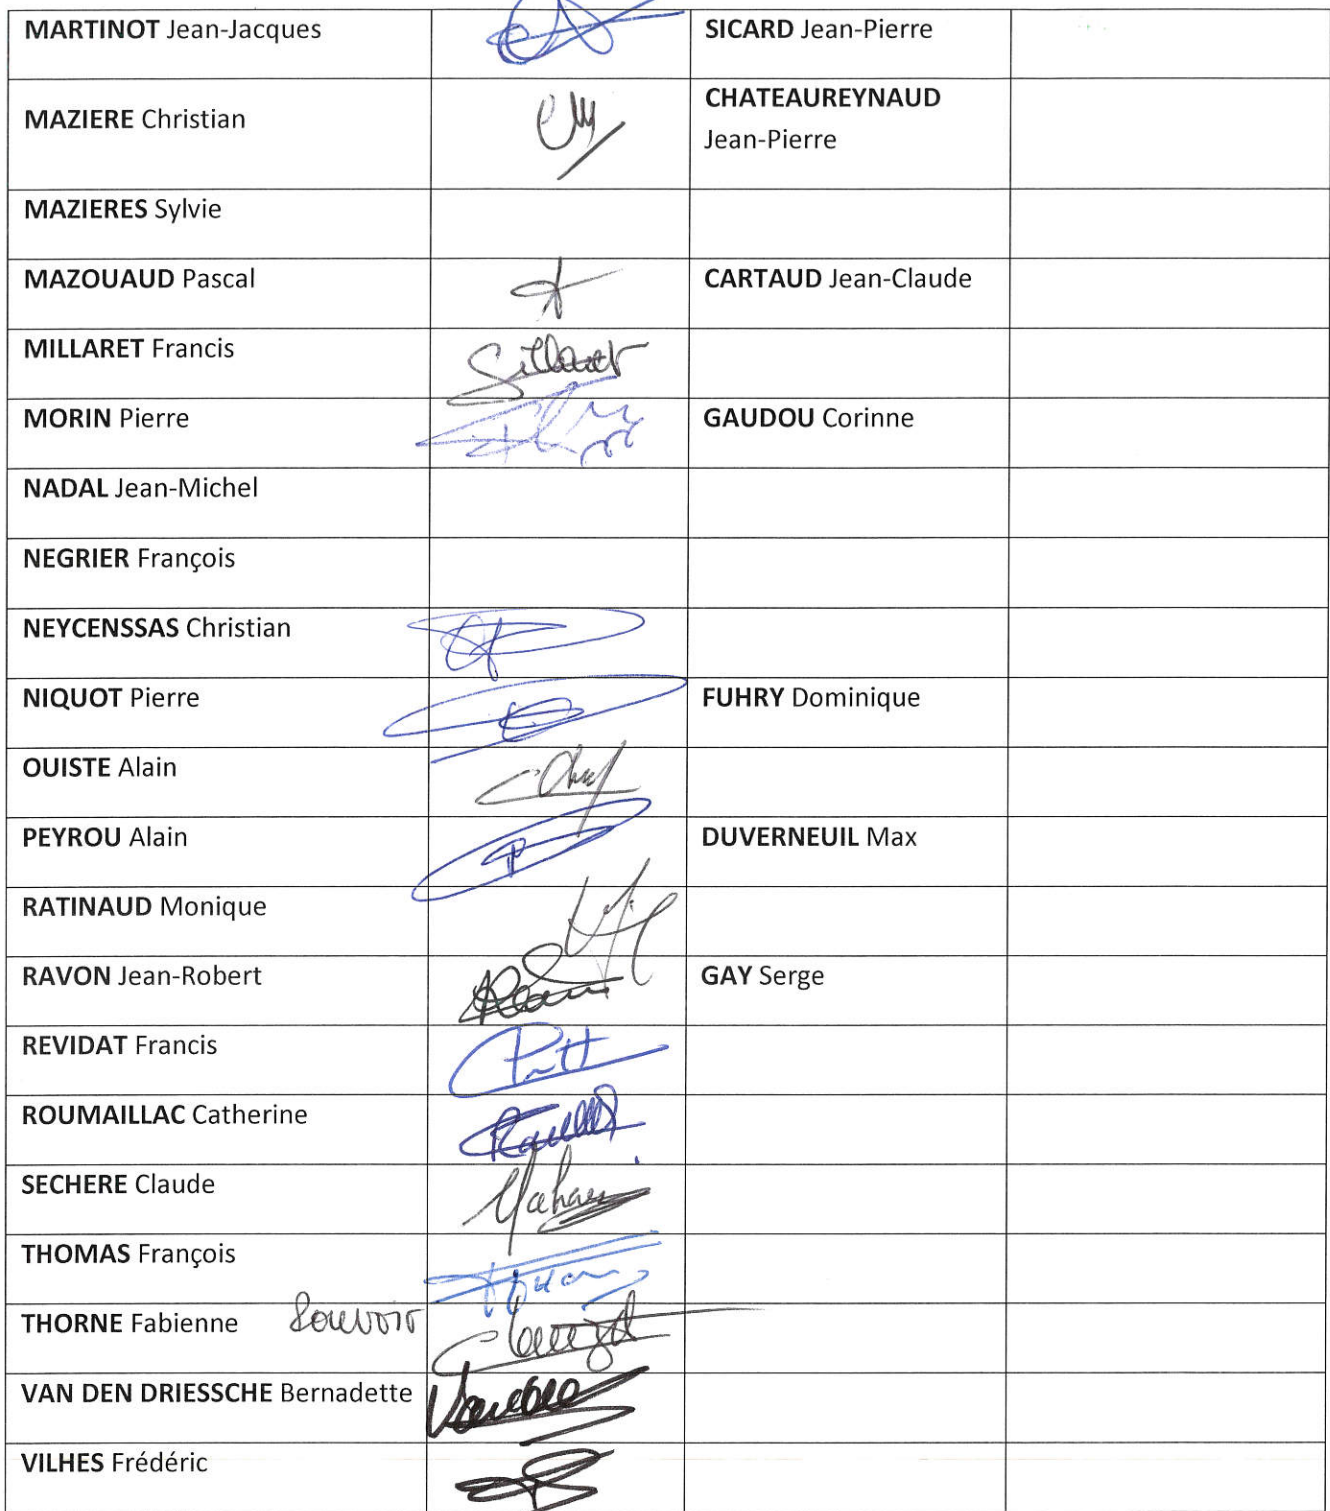 MARTINOT Jean-Jacques SICARD Jean-Pierre
MAZIERE Christian CHATEAUREYNAUD
Jean-Pierre
MAZIERES Sylvie
MAZOUAUD Pascal CARTAUD Jean-Claude
MILLARET Francis
MORIN Pierre GAUDOU Corinne
NADAL Jean-Michel
NEGRIER François
NEYCENSSAS Christian
NIQUOT Pierre FUHRY Dominique
OUISTE Alain
PEYROU Alain DUVERNEUIL Max
RATINAUD Monique
RAVON Jean-Robert GAY Serge
REVIDAT Francis
ROUMAILLAC Catherine
SECHERE Claude
THOMAS François
THORNE Fabienne Pouvoir
VAN DEN DRIESSCHE Bernadette
VILHES Frédéric